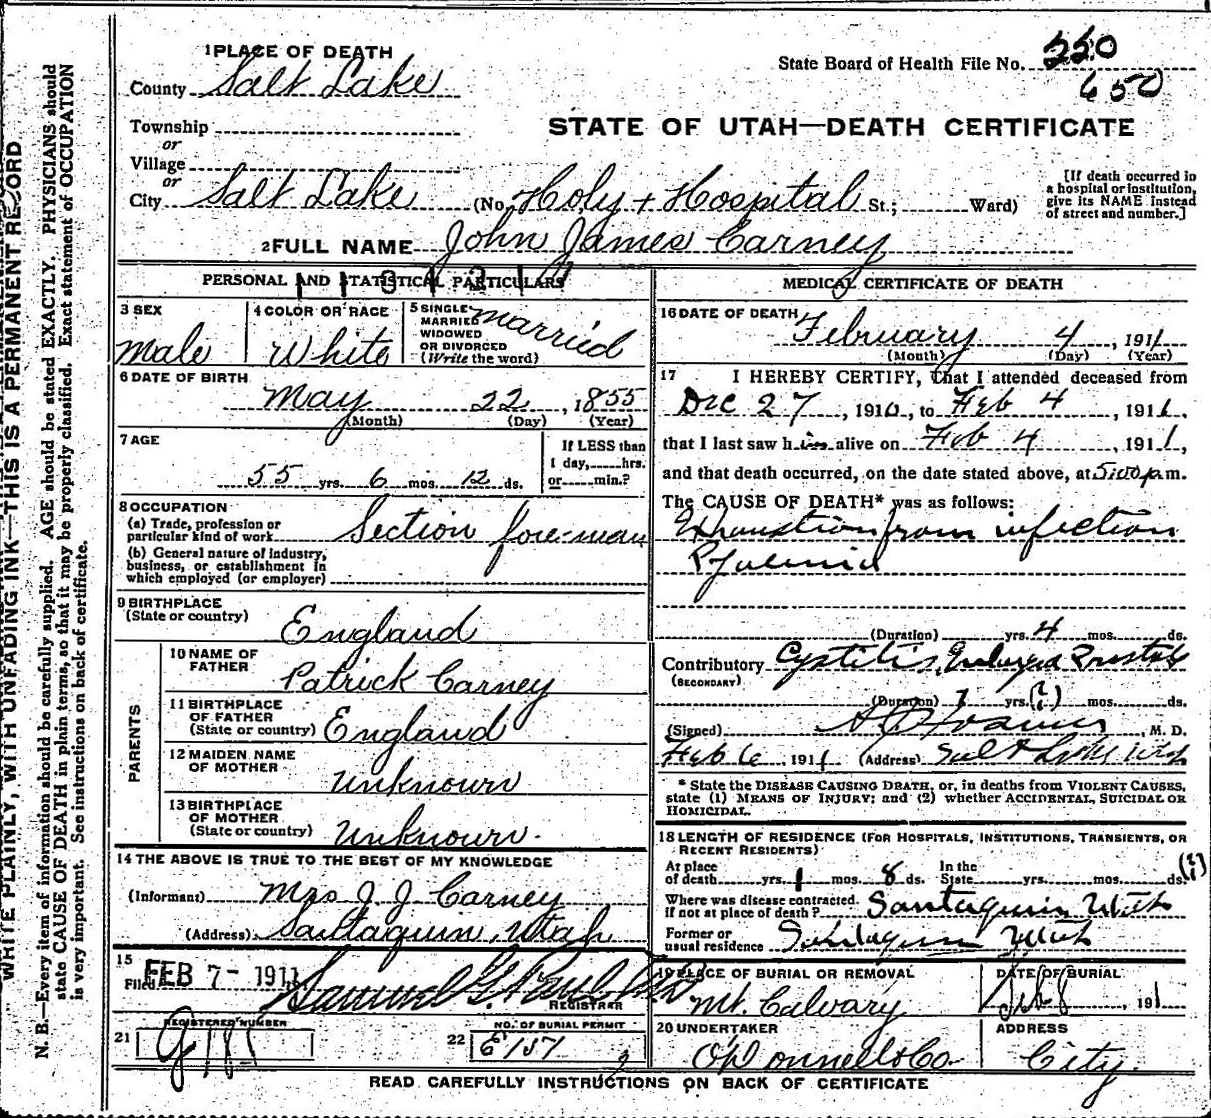 WRITE PLAINLY, WITH UNFADING INK—THIS IS A PERMANENT RECORD
N. B.—Every item of information should be carefully supplied. AGE should be stated EXACTLY. PHYSICIANS should
state CAUSE OF DEATH in plain terms, so that it may be properly classified. Exact statement of OCCUPATION
is very important. See instructions on back of certificate.
1 PLACE OF DEATH
County Salt Lake
State Board of Health File No. 220
650
Township
or
Village
or
City Salt Lake (No. Holy + Hospital St.; Ward)
STATE OF UTAH—DEATH CERTIFICATE
[If death occurred in
a hospital or institution,
give its NAME instead
of street and number.]
2 FULL NAME John James Carney
PERSONAL AND STATISTICAL PARTICULARS
3 SEX
Male
4 COLOR OR RACE
White
5 SINGLE
MARRIED
WIDOWED
OR DIVORCED
(Write the word)
married
6 DATE OF BIRTH
May 22, 1855
(Month) (Day) (Year)
7 AGE
55 yrs. 6 mos. 12 ds.
If LESS than
1 day, hrs.
or min.?
8 OCCUPATION
(a) Trade, profession or
particular kind of work Section fore-man
(b) General nature of industry,
business, or establishment in
which employed (or employer)
9 BIRTHPLACE
(State or country) England
PARENTS
10 NAME OF
FATHER
Patrick Carney
11 BIRTHPLACE
OF FATHER
(State or country) England
12 MAIDEN NAME
OF MOTHER
Unknown
13 BIRTHPLACE
OF MOTHER
(State or country) Unknown.
14 THE ABOVE IS TRUE TO THE BEST OF MY KNOWLEDGE
(Informant) Mrs J. J. Carney
(Address) Santaquin, Utah
15
Filed FEB 7 - 1911 Samuel G.
REGISTRAR
21 REGISTERED NUMBER
22 NO. OF BURIAL PERMIT
MEDICAL CERTIFICATE OF DEATH
16 DATE OF DEATH
February 4, 1911
(Month) (Day) (Year)
17 I HEREBY CERTIFY, That I attended deceased from
Dec 27, 1910, to Feb 4, 1911,
that I last saw him alive on Feb 4, 1911,
and that death occurred, on the date stated above, at 5:00 p.m.
The CAUSE OF DEATH* was as follows:
Exhaustion from infection
(Duration) yrs. 4 mos. ds.
Contributory Cystitis, Enlarged Prostate
(SECONDARY)
(Duration) 7 yrs. (?) mos. ds.
(Signed) , M. D.
Feb 6, 1911 (Address) Salt Lake Utah
* State the DISEASE CAUSING DEATH, or, in deaths from VIOLENT CAUSES,
state (1) MEANS OF INJURY; and (2) whether ACCIDENTAL, SUICIDAL OR
HOMICIDAL.
18 LENGTH OF RESIDENCE (FOR HOSPITALS, INSTITUTIONS, TRANSIENTS, OR
RECENT RESIDENTS)
At place
of death yrs. 1 mos. 8 ds. In the
State yrs. mos. ds.
Where was disease contracted,
if not at place of death? Santaquin Utah
Former or
usual residence Santaquin Utah
19 PLACE OF BURIAL OR REMOVAL
Mt. Calvary
DATE OF BURIAL
Feb 8, 191
20 UNDERTAKER
O'Donnell & Co.
ADDRESS
City.
READ CAREFULLY INSTRUCTIONS ON BACK OF CERTIFICATE